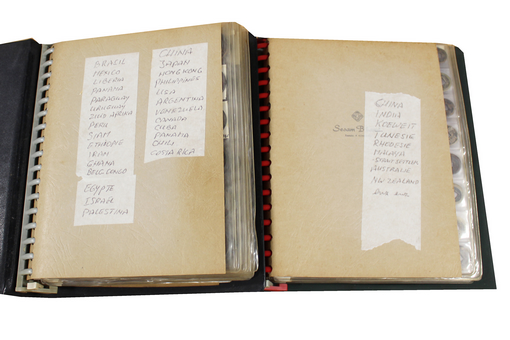 BRASIL
MEXICO
LIBERIA
PANAMA
PARAGUAY
URUGUAY
ZUID AFRIKA
PERU
SIAM
ETHIOPIE
IRAN
GHANA
BELG. CONGO
EGYPTE
PALESTINA
CHINA
JAPAN
HONGKONG
PHILIPPINES
U.S.A
ARGENTINA
VENEZUELA
CANADA
CUBA
PANAMA
CHILI
COSTA RICA
CHINA
INDIA
KOEWEIT
TUNESIE
RHODESIE
MALAYA
AUSTRALIE
NEW ZEALAND